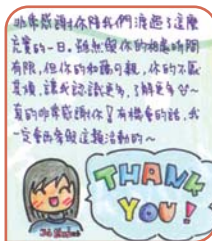 非常感謝你陪我們渡過了這麼
充實的一日。雖然與你的相處時間
有限,但你的和藹可親,你的不厭
其煩,讓我認識更多,了解更多~
真的非常感謝你!有機會的話,我
一定會再參與這類活動的~
THANK
YOU!